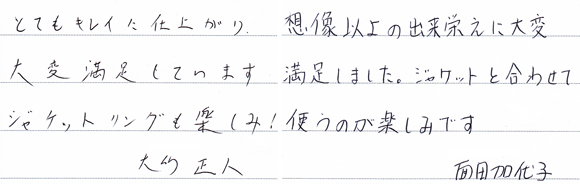 とてもキレイに仕上がり、
大変満足しています
ジャケットリングも楽しみ!
大竹 正人
想像以上の出来栄えに大変
満足しました。ジャケットと合わせて
使うのが楽しみです
面田加代子